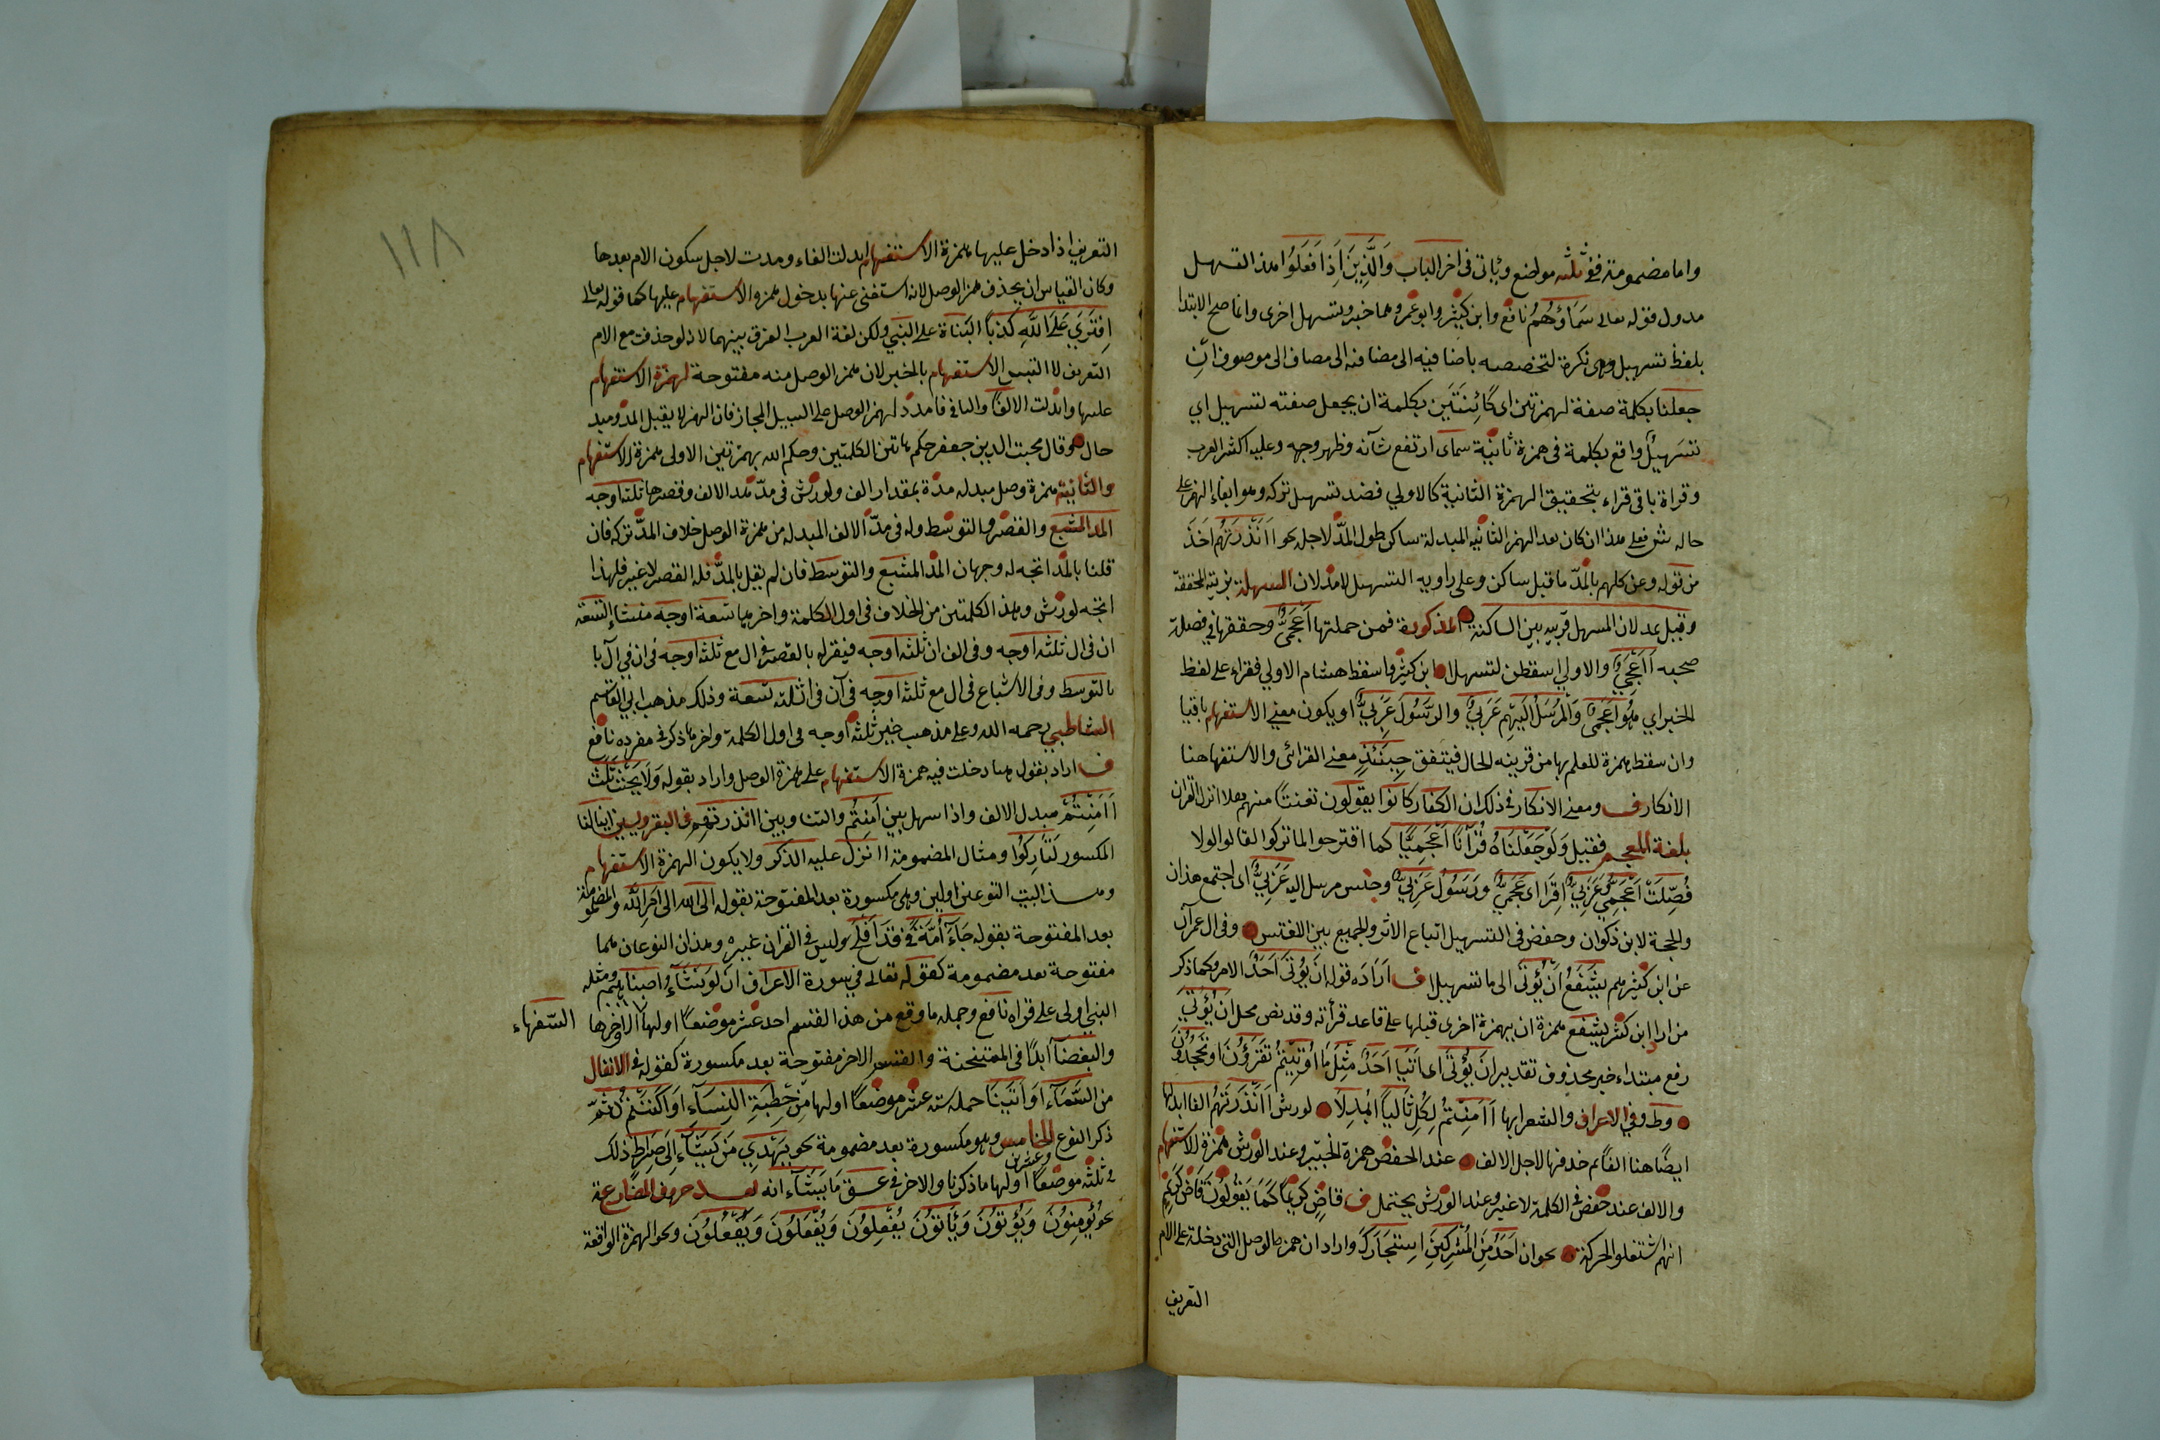 واما مضمومة ففي ثلثه مواضع وياتى فى اخر الباب وَالَّذِينَ اَذِا فَعَلَوُا هذا التسهيل
مدول قوله تعالى سَمَاؤهُمُ نافع وابن كثير وابو عمرو وهما خبر وتسهل اخرى وانما صح الابتدا
بلفظ تسهيل وهى نكرة لتخصصه باضافيه الى مضافه الى مضاف الى موصوف
جعلنا بكلمة صفة لهمزتين اى كَائِنَتَين بكلمة ان يجعل صفته لتسهيل اي
تسهيل واقع بكلمة فى همزة ثانية سماى ارتفع شآنه وظهر وجهه وعليه اكثر العرب
وقراة باقى قراء بتحقيق الهمزة الثانية كالاولي فضد تسهيل تركه وهو ابقاء الهمز على
حاله فعلى هذا ان كان بعد الهمز الثانيه المبدلة ساكن طول المدّ لاجله نحو اَاَنْذَرتَهُم اخذ
من قوله وعن كلهم بالمدّ ما قبل ساكن وعلى راويه التسهيل لا مد لان المسهلة بزنة المحققة
وقيل يمد لان المسهل قريبه بين الساكنة المذكورة فمن جملتها اَعْجَميٌّ وحققها في فصلت
صحبه اَاَعْجَميٌّ والاولي اسقطن لتسهلا ابن كثير واسقط هشام الاولي فقراء على لفظ
الخبر اي هُوَ اَعْجَميٌّ وَالْمُرْسَلُ اِلَيْهِم عَرَبيٌّ والرَّسُولُ عَرَبيٌّ او يكون معني الاستفهام باقيا
وان سقط همزة للعلم بها من قرينه الحال فيتفق حِينَئِذٍ معني القرائى والاستفها هنا
الانكار ف ومعني الانكار فى ذلك ان الكفار كانوا يقولون تعنتًا منهم هلا انزل القران
بلغة العجم فقيل وَلَوْجَعَلْنَاهُ قُرْآنًا اَعْجَمِيًّا كما اقترحوا لما تركوا القالوا لولا
فُصِّلَتْ اَعْجَمِيٌّ عَرَبيٌّ اِقْرَاى عَجَميٌّ ورَسُولٌ عَرَبيٌّ وجنس مرسل اليه عَرَبيٌّ اى اجتمع هذان
والحجة لابن ذكوان وحفص فى التسهيل اتباع الاثر والجميع بين اللغتين وفى ال عمرآن
عن ابن كثيرهم يشَفَّعُ اَنْ يُؤْتَى الى ما تسهيلا ف اَرَادَه قوله اَنْ يُؤْتَى اَحَدٌ الامر وكما ذكر
من ارا ابن كثر يشفع همزة ان بهمزة اخرى قبلها على قاعد قرأته وقد نص محل ان يُؤْتَي
رفع مبتداء خبر محذوف تقديره اَنْ يُؤْتَى اى اتيا اَحَدٌ مِثْلَ مَا اُوتِيتُمْ تقرؤن او تجحدون
وطه وفي الاعراف والشعرا بها اَاَمِنْتُمُ لِكُلِّ ثَالِياً اُبْدِلَا لورش اَاَنْذَرتَهُمُ الفا ابدلها
ايضًا هنا الفًا ثم حذفها لاجل الالف عند الحفص همزة الخبير وعند الورش همزة الاستفهام
والالف عند حفص فى الكلمة لا غير وعند الورش يحتمل ف قاضٍ كريمًا كَمَا يَقُولُونَ قاض كريم
انهم استثقلوا الحركة نحو ان اَحَدٌ مِنَ الْمُشْرِكِينَ اسْتَجَارَكَ واراد ان همزه الوصل التى دخلة على الام
التعريف
١١٨
التعريف اذا دخل عليها همزة الاستفهام ابدلت الفاء ومدت لاجل سكون الام بعدها
وكان القياس ان يحذف همز الوصل لانه استغنى عنها بدخول همزه الاستفهام عليها كما قوله تعالى
اِفْتَرَي عَلَى اللَّهِ كَذِبًا البَنَاة على البني ولكن لغة العرب الفرق بينهما لانه لو حذفت مع الام
التعريف لا التبس الاستفهام بالخبر لان همز الوصل منه مفتوحة لهمزة الاستفهام
عليها وابدلت الالفًا والباقى فامدد لهمز الوصل على السبيل المجاز فان الهمز لا يقبل المدّ ومبد
حال وقال محبت الدين جعفر حكم هاتين الكلمتين وحكم الله بهمزتين الاولى همزة الاستفهام
والثانية همزة وصل مبدله مدّة بمقدار الف ولورش فى مدّ هذا الالف وقصرها ثلثا وجه
المد المشبع والقصر والتوسط وله فى مدّ الالف المبدله من همزة الوصل خلاف المدّ تركه فان
قلنا بالمدّ اتجه له وجهان المدّ المشبع والتوسط فان لم يقل بالمدّ فله القصر لا غير فلهذا
اتجه لورش وهذ الكلمتين من الخلاف فى اول الكلمة واخر هما تسعة اوجه منشاء التسعة
ان فى ال ثلثه اوجه وفى الف ان ثلثه اوجه فيقرا له بالقصر فى ال مع ثلثه اوجه فى ان في ال با
بالتوسط وفى الاشباع فى ال مع ثلثه اوجه فى آن فى اثلثه تسعة وذلك مذهب ابي القاسم
الشاطبي رحمه الله وعلى مذهب خير ثلثه اوجه فى اول الكلمة واخرها ذكر فى مفرده نافع
ف اراد بقول هما دخلت فيه همزة الاستفهام على همزة الوصل واراد بقوله وَلَا بحث ثلث
اَاَمِنْتُمْ مبدل الالف واذا سهل بين اَمنِتُم والتا وبين ااَنذرتهم فى البقر وليس اينا لنا
المكسور لَتَارِكُوا ومثال المضمومة اا نزل عليه الذكر ولا يكون الهمزة الاستفهام
وهذ البيت التوعين اولين وهى مكسورة بعد المفتوحة بقوله الى الله الى اَمْرِ اللَّهِ والمضمومة
بعد المفتوحة بقوله جَاءَ اُمَّةً فى قد افلح وليس فى القران غيره وهذان النوعان هما
مفتوحة بعد مضمومة كقوله تعالى في سورة الاعراف اَنْ لَوْ نَشَآءُ اصبنا بهم ومثله
النبي اولى على قراه نافع وجمله ما وقع من هذا القسم احد عشر موضعًا اولها الا واخرها
السّفهاء
والبغضآ ابدًا فى الممتحنة والقسم الاخر مفتوحة بعد مكسورة كقوله فى الانفال
من السَّمَآءِ اَوِ اْتَيْنَا جمله سته عشر موضعًا اولها مِن خِطْبَةِ النِسَآءِ اَوْ اَكْنَنْتُمْ ثم
ذكر النوع الخامس وهو مكسورة بعد مضمومة نحو يَهْدِي مَنْ يَشَآءُ اِلَى صِرَاطٍ ذلك
وعشرين
فى ثلثه موضعًا اولها ما ذكرنا والاخر فى عسق مَا يَشَآءُ انه بعد حروف المضارعة
نحو يُومِنُونَ وَيُؤتوُنَ وَيَأتوُنَ يُفْعِلوُنَ وَيُفْعَلوُنَ وَيَفْعَلوُنَ ونحو الهمزة الواقعة